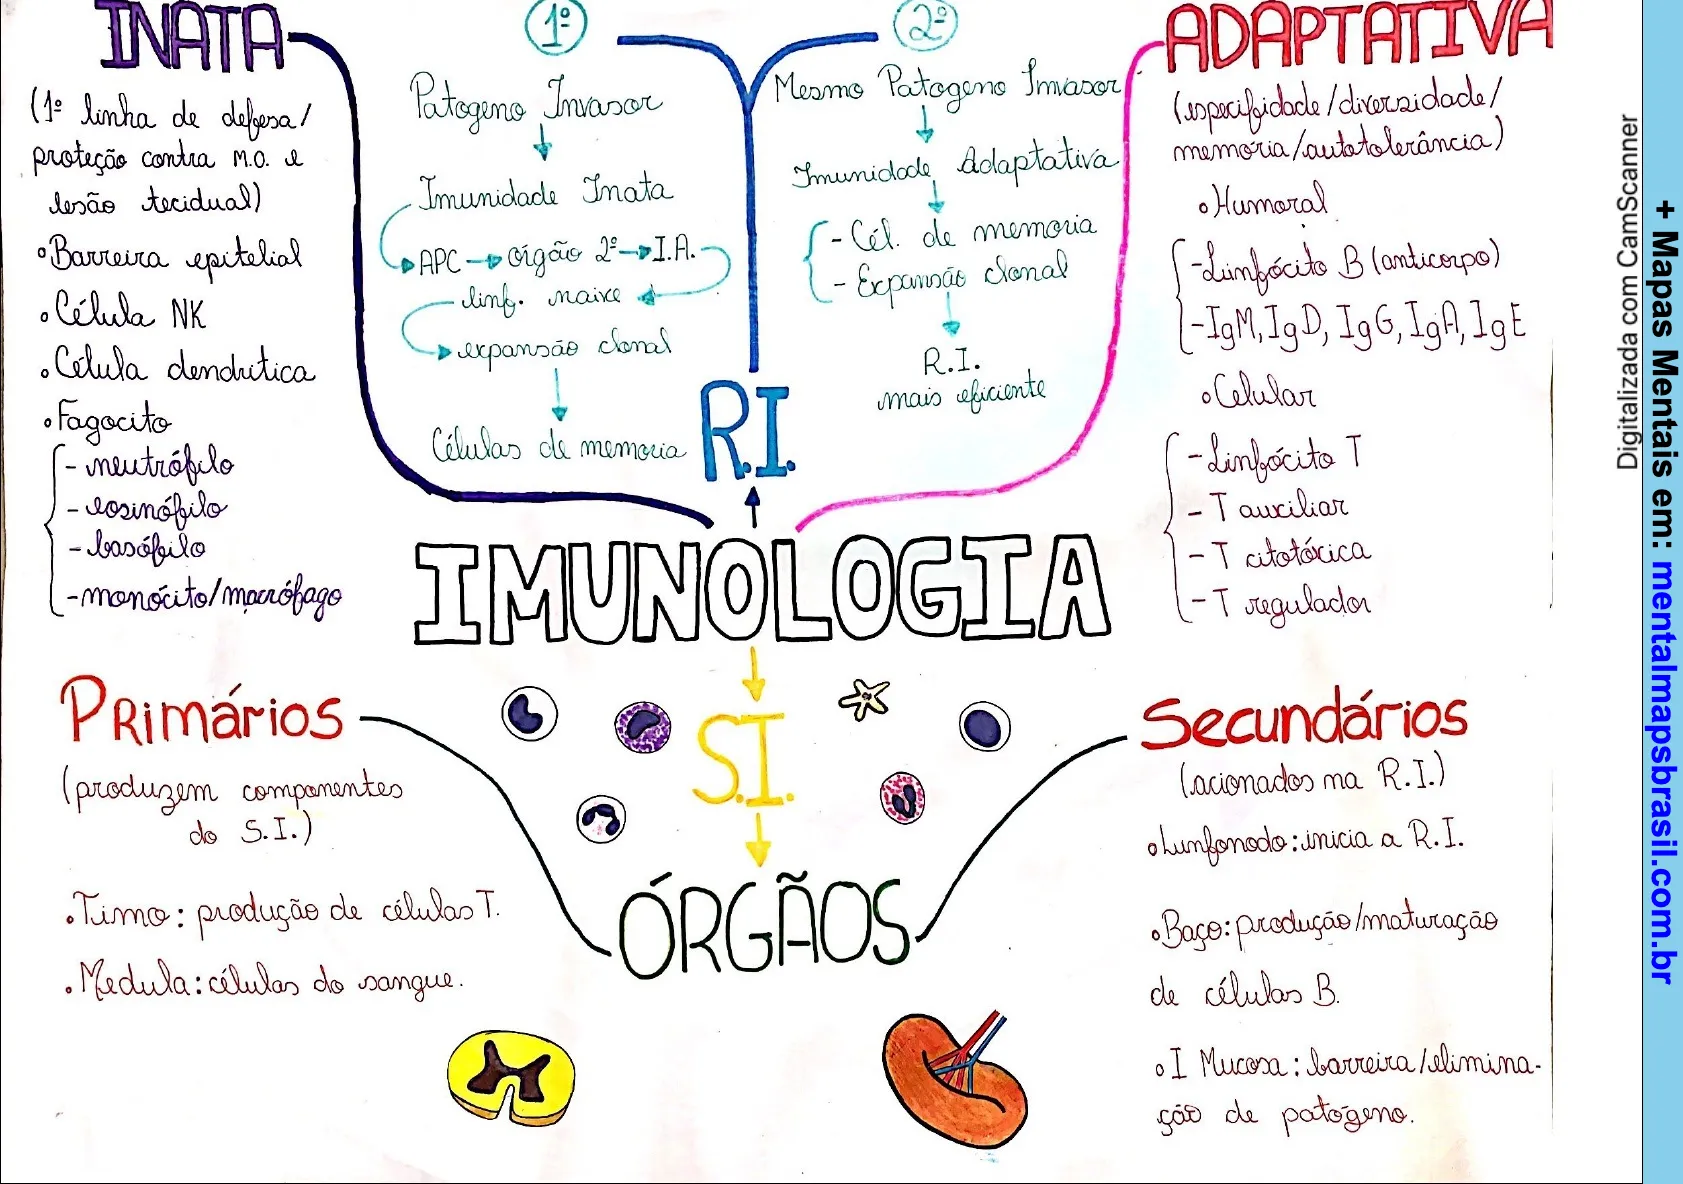 INATA
(1º linha de defesa/
proteção contra M.O. e
lesão tecidual)
Barreira epitelial
Célula NK
Célula dendrítica
Fagocito
- neutrófilo
- eosinófilo
- basófilo
- monócito/macrófago
1º
Patogeno Invasor
Imunidade Inata
APC → órgão 2º → I.A.
linf. naive
expansão clonal
Células de memoria
2º
Mesmo Patogeno Invasor
Imunidade Adaptativa
- Cél. de memoria
- Expansão clonal
R.I.
mais eficiente
R.I.
ADAPTATIVA
(especifidade/diversidade/
memoria/autotolerância)
Humoral
- Linfócito B (anticorpo)
- IgM, IgD, IgG, IgA, IgE
Celular
- Linfócito T
- T auxiliar
- T citotóxica
- T regulador
IMUNOLOGIA
S.I.
ÓRGÃOS
Primários
(produzem componentes
do S.I.)
Timo: produção de células T.
Medula: células do sangue.
Secundários
(acionados na R.I.)
Linfonodo: inicia a R.I.
Baço: produção/maturação
de células B.
I Mucosa: barreira/elimina-
ção de patógeno.
Digitalizada com CamScanner
+ Mapas Mentais em: mentalmapsbrasil.com.br